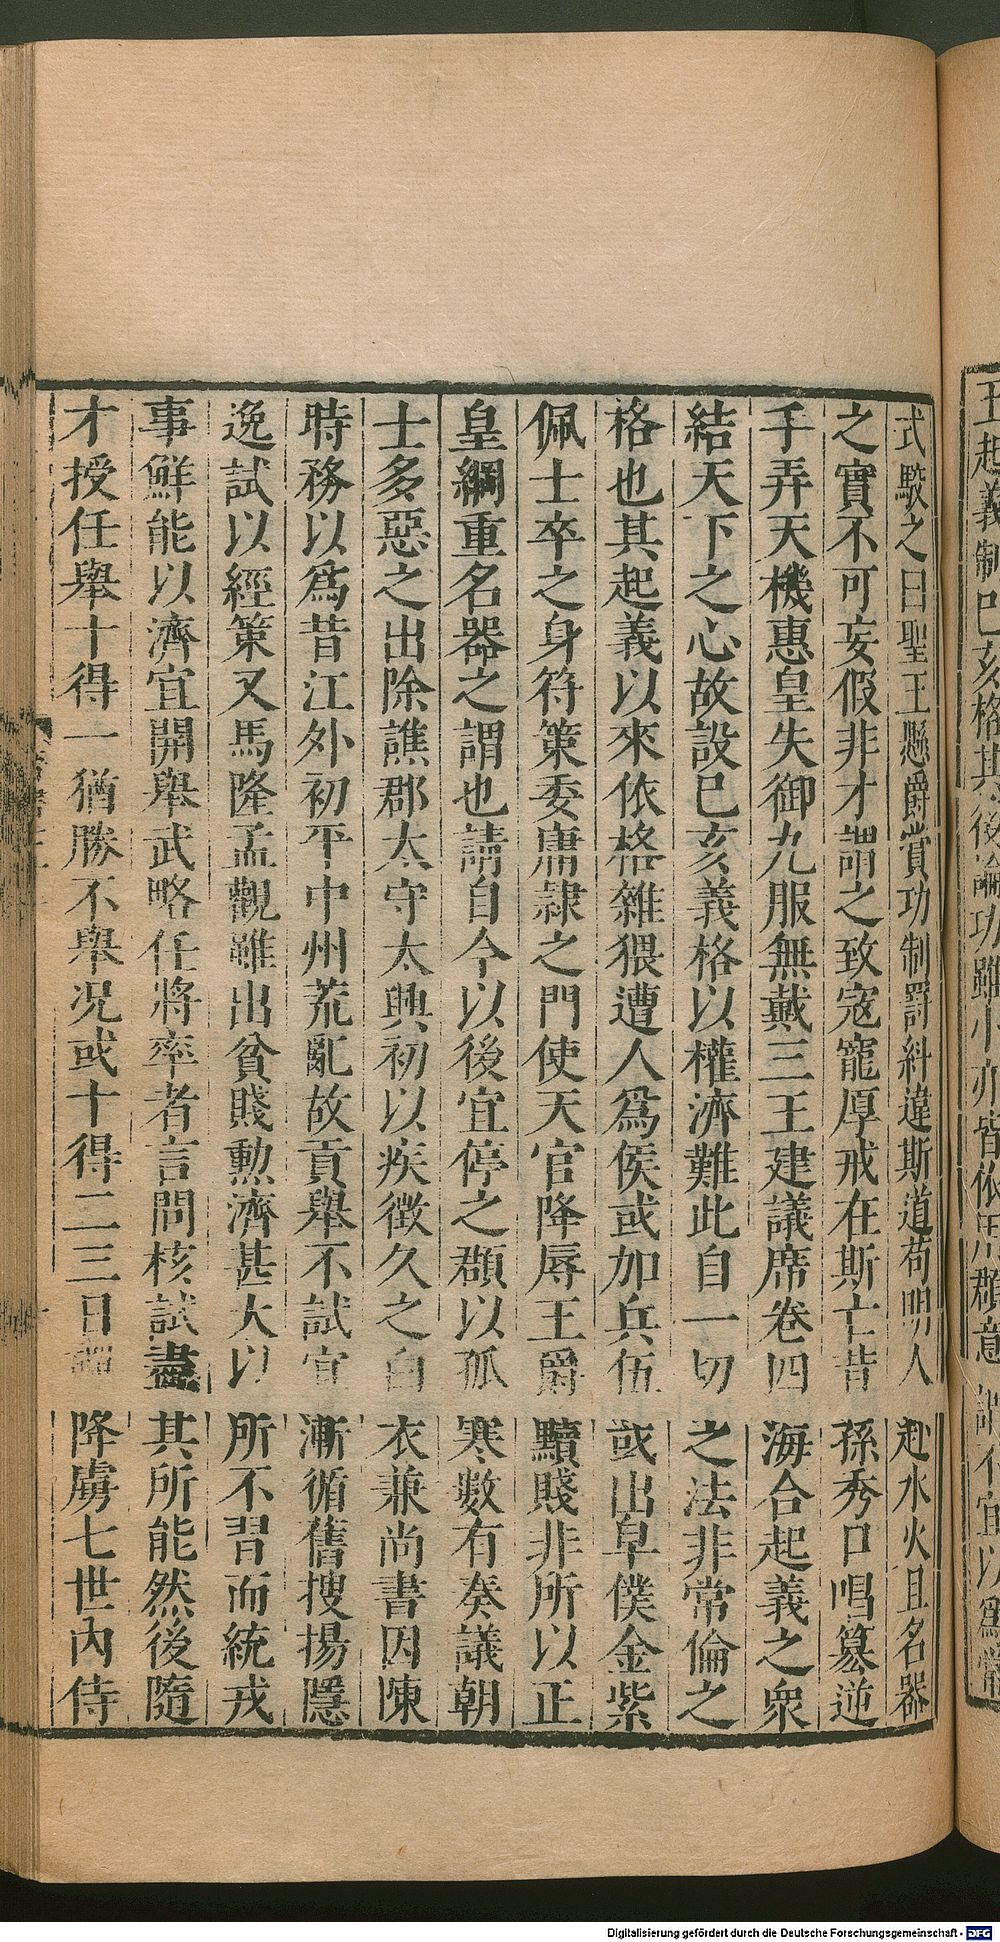 式駮之曰聖王懸爵賞功制罰糾違斯道苟明人赴水火且名器
之實不可妄假非才謂之致寇寵厚戒在斯亡昔孫秀口唱篡逆
手弄天機惠皇失御九服無戴三王建議席卷四海合起義之衆
結天下之心故設巳亥義格以權濟難此自一切之法非常倫之
格也其起義以來依格雜猥遭人爲侯或加兵伍或出皁僕金紫
佩士卒之身符策委庸隷之門使天官降辱王爵黷賤非所以正
皇綱重名器之謂也請自今以後宜停之顗以孤寒數有奏議朝
士多惡之出除譙郡太守太興初以疾徵久之白衣兼尚書因陳
時務以爲昔江外初平中州荒亂故貢舉不試宜漸循舊搜揚隱
逸試以經策又馬隆孟觀雖出貧賤勲濟甚大以所不習而統戎
事鮮能以濟宜開舉武略任將率者言問核試盡其所能然後隨
才授任舉十得一猶勝不舉况或十得二三日磾降虜七世內侍
王起義制巳亥格其後論功雖小亦皆依用顗意謂不宜以爲常
Digitalisierung gefördert durch die Deutsche Forschungsgemeinschaft - DFG